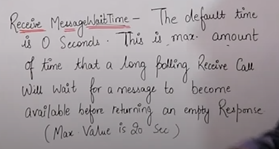 Receive MessageWaitTime - The default time
is 0 Seconds. This is max. amount
of time that a long polling Receive Call
Will Wait for a message to become
available before returning an empty Response
(Max Value is 20 Sec)